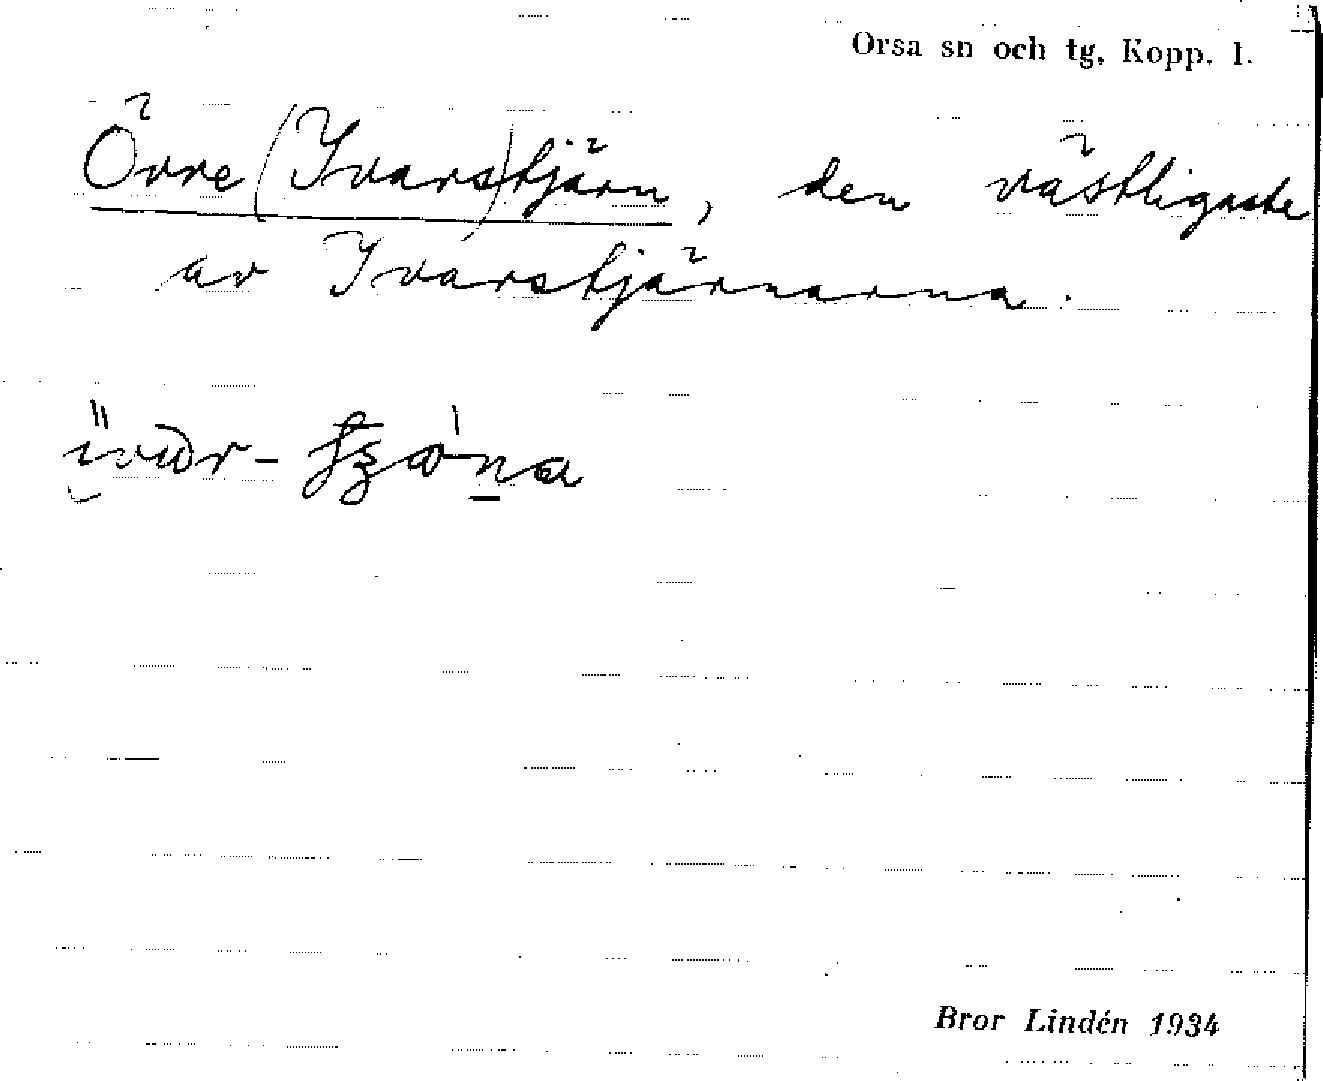 Orsa sn och tg, Kopp. l.
Övre (Ivars)tjärn, den västligaste
av Ivarstjärnarna.
Bror Lindén 1934